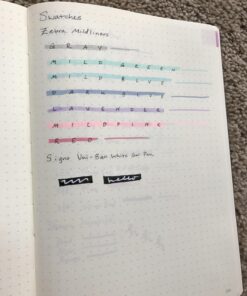 Swatches
Zebra Mildliners
GRAY
MILD GREEN
MILD BLUE
DARK BLUE
LAVENDER
MILD PINK
RED
Signo Uni-Ball White Gel Pen
hello